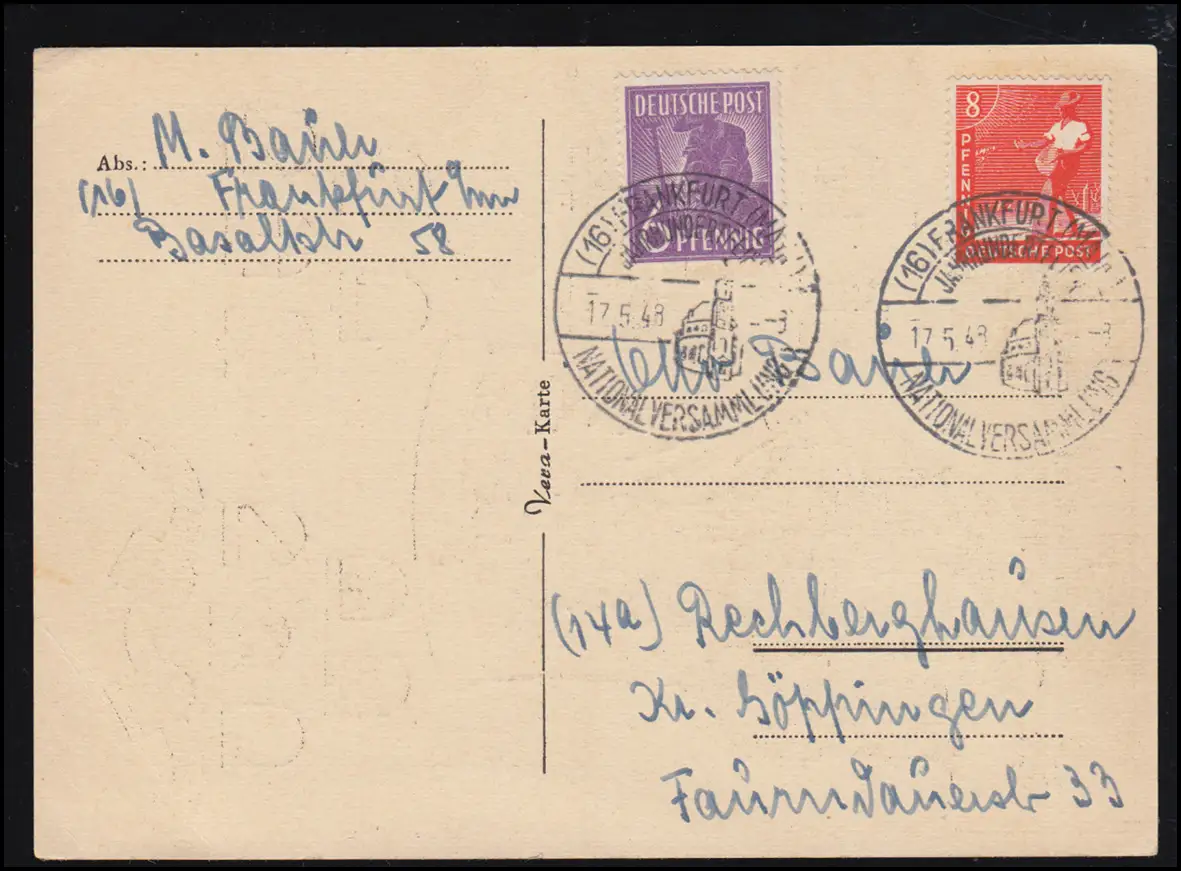 Abs.: M. Bauer
(16) Frankfurt/Mn
Basaltstr 58
DEUTSCHE POST
PFENNIG
8
PFENNIG
DEUTSCHE POST
(16) FRANKFURT (MAIN)
JAHRHUNDERTFEIER
17.5.48 -8
NATIONALVERSAMMLUNG
(16) FRANKFURT (MAIN)
JAHRHUNDERTFEIER
17.5.48 -8
NATIONALVERSAMMLUNG
Vera-Karte
Bauer
(14a) Rechberghausen
Kr. Göppingen
Faurndauerstr 33